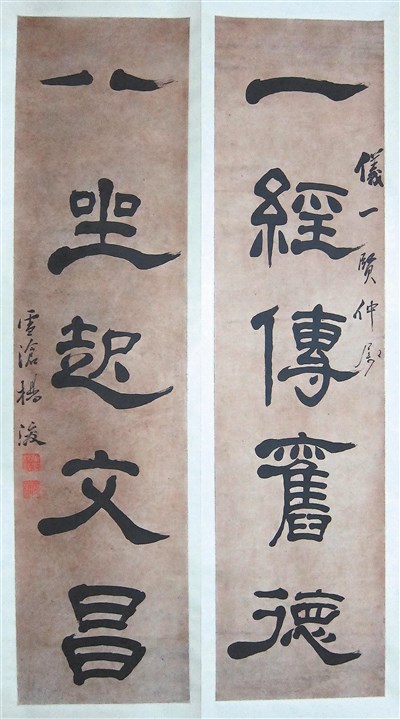 儀一賢仲屬
一經傳舊德
八坐起文昌
雪滄楊浚